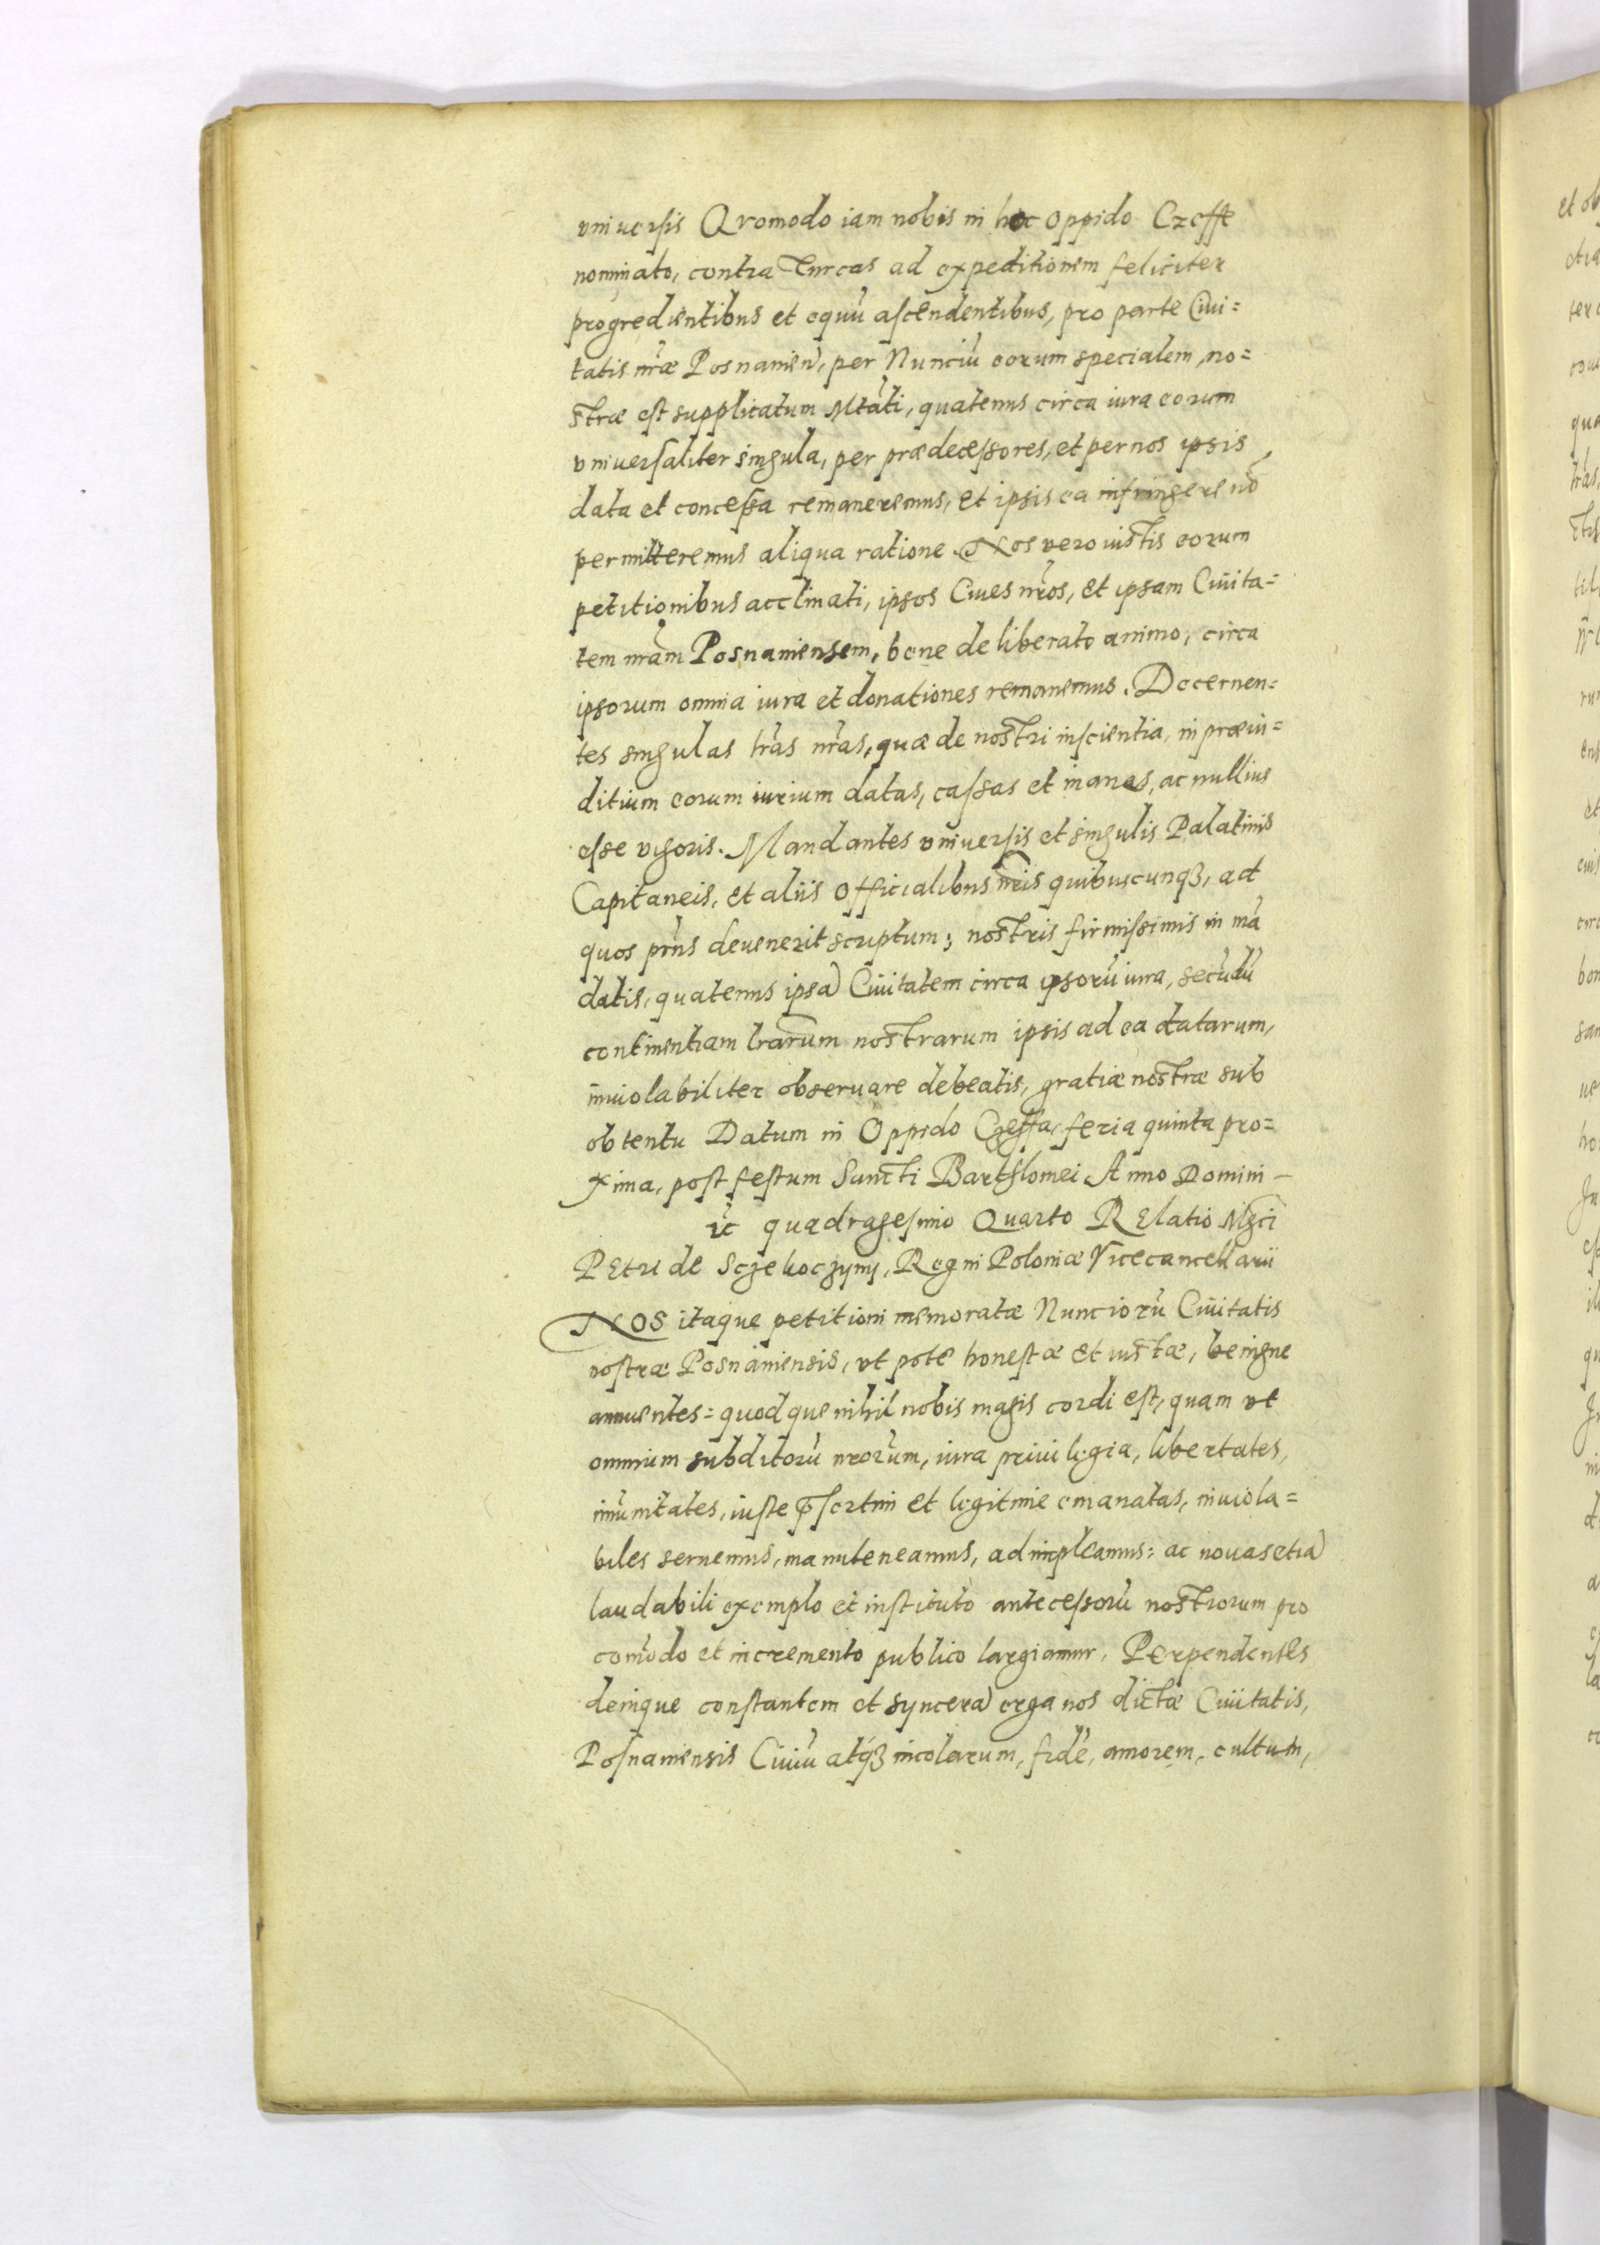 vniuersis Qvomodo iam nobis in hoc oppido Czeffe
nominato, contra Turcas ad expeditionem feliciter
progredientibus et equū ascendentibus, pro parte Ciui=
tatis nrǣ Posnanien̄, per Nunciū eorum specialem, no=
stræ est supplicatum Mtāti, quatenus circa iura eorum
vniuersaliter singula, per prædecessores, et per nos ipsis
data et concessa remaneremus, et ipsis ea infringere nō
permitteremus aliqua ratione. Nos vero iustis eorum
petitionibus acclinati, ipsos Ciues nrōs, et ipsam Ciuita=
tem nrām Posnaniensem, bene deliberato animo, circa
ipsorum omnia iura et donationes remanemus. Decernen=
tes singulas lrās nrās, quæ de nostri inscientia, in præiu=
ditium eorum iurium datas, cassas et inanes, ac nullius
esse vigoris. Mandantes vniuersis et singulis Palatinis
Capitaneis, et aliis Officialibus nrīs quibuscunqȝ, ad
quos prn̄s deuenerit scriptum; nostris firmissimis in mā
datis, quatenus ipsā Ciuitatem circa ipsorū iura, secūdū
continentiam lrārum nostrarum ipsis ad ea datarum,
inuiolabiliter obseruare debeatis, gratiæ nostræ sub
obtentu Datum in Oppido Czeffa, feria quinta pro=
xima, post festum Sancti Bartholomei Anno Domini –
ic̄ quadragesimo Quarto RElatio Mgc̄i
PEtri de Sczekoczyny, Regni Poloniæ Vicecancellarii
NOS itaque petitioni memoratæ Nunciorū Ciuitatis
nostræ Posnaniensis, vt pote honestæ et iustæ, benigne
annuentes= quodque nihil nobis magis cordi est, quam vt
omnium subditorū nrōrum, iura priuilegia, libertates,
imūnitates, iuste p̄sertim et legitime emanatas, inuiola=
biles seruemus, manuteneamus, adimpleamus: ac novas etiā
laudabili exemplo et instituto antecessorū nostrorum pro
com̄odo et incremento publico largiamur. Perpendentes
denique constantem et syncerā erga nos dictæ Ciuitatis,
Posnaniensis Ciuiū atqȝ incolarum, fidē, amorem, cultum,